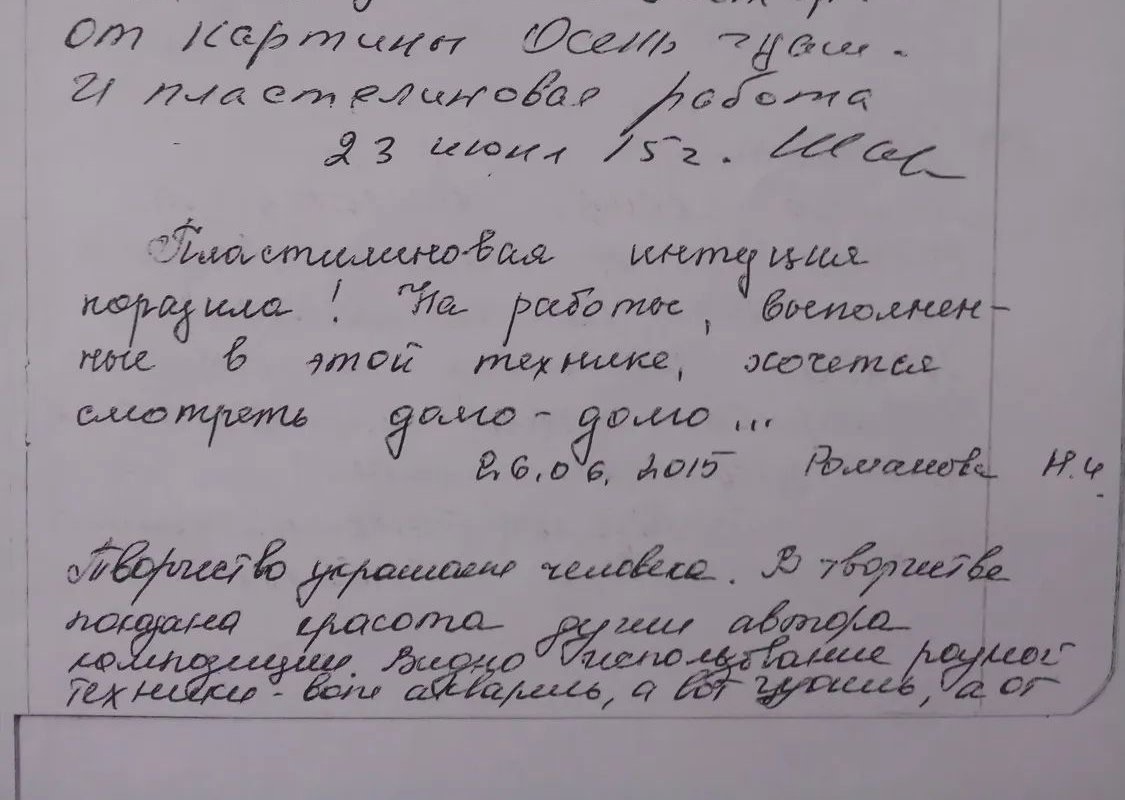 от картины Осень гуаш.
И пластелиновая работа
23 июня 15г.
Пластилиновая интуция
поразила! На работы, выполнен-
ные в этой технике, хочется
смотреть долго-долго...
26.06.2015 Романова Н.И.
Творчество украшает человека. В творчестве
показана красота души автора
композиции. Видно использование разной
техники - вот акварель, а вот гуашь, а от